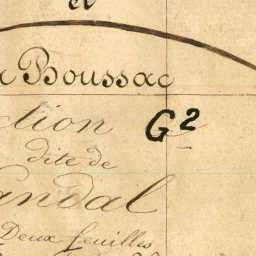 et
Boussac
ction G²
dite de
andal
Deux feuilles